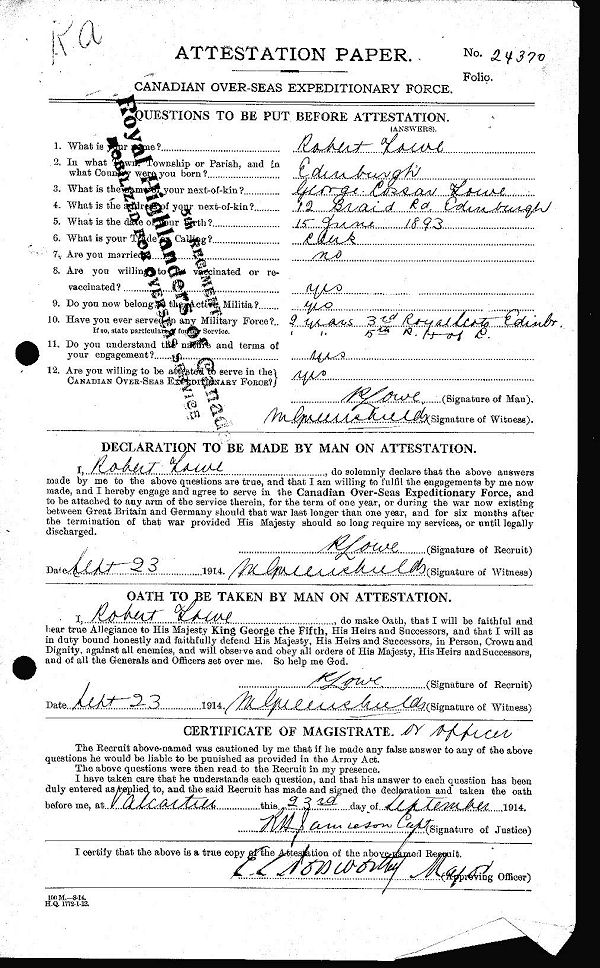 Ra
ATTESTATION PAPER.
No. 24370
Folio.
CANADIAN OVER-SEAS EXPEDITIONARY FORCE.
QUESTIONS TO BE PUT BEFORE ATTESTATION.
(ANSWERS).
1. What is your name? Robert Lowe
2. In what Town, Township or Parish, and in
what Country were you born? Edinburgh
3. What is the name of your next-of-kin? George Cossar Lowe
4. What is the address of your next-of-kin? 12 Braid Rd, Edinburgh
5. What is the date of your birth? 15 June 1893
6. What is your Trade or Calling? Clerk
7. Are you married? no
8. Are you willing to be vaccinated or re-
vaccinated? yes
9. Do you now belong to the Active Militia? yes
10. Have you ever served in any Military Force? 2 years 3rd Royal Scots Edinbr.
If so, state particulars of former Service. " " 5th R. H of C.
11. Do you understand the nature and terms of
your engagement? yes
12. Are you willing to be attested to serve in the
CANADIAN OVER-SEAS EXPEDITIONARY FORCE? yes
5th REGIMENT
Royal Highlanders of Canada
MOBILIZED FOR OVERSEAS SERVICE
R Lowe (Signature of Man).
M Greenshields (Signature of Witness).
DECLARATION TO BE MADE BY MAN ON ATTESTATION.
I, Robert Lowe, do solemnly declare that the above answers
made by me to the above questions are true, and that I am willing to fulfil the engagements by me now
made, and I hereby engage and agree to serve in the Canadian Over-Seas Expeditionary Force, and
to be attached to any arm of the service therein, for the term of one year, or during the war now existing
between Great Britain and Germany should that war last longer than one year, and for six months after
the termination of that war provided His Majesty should so long require my services, or until legally
discharged.
R Lowe (Signature of Recruit)
Date Sept 23 1914. M Greenshields (Signature of Witness)
OATH TO BE TAKEN BY MAN ON ATTESTATION.
I, Robert Lowe, do make Oath, that I will be faithful and
bear true Allegiance to His Majesty King George the Fifth, His Heirs and Successors, and that I will as
in duty bound honestly and faithfully defend His Majesty, His Heirs and Successors, in Person, Crown and
Dignity, against all enemies, and will observe and obey all orders of His Majesty, His Heirs and Successors,
and of all the Generals and Officers set over me. So help me God.
R Lowe (Signature of Recruit)
Date Sept 23 1914. M Greenshields (Signature of Witness)
CERTIFICATE OF MAGISTRATE. or officer
The Recruit above-named was cautioned by me that if he made any false answer to any of the above
questions he would be liable to be punished as provided in the Army Act.
The above questions were then read to the Recruit in my presence.
I have taken care that he understands each question, and that his answer to each question has been
duly entered as replied to, and the said Recruit has made and signed the declaration and taken the oath
before me, at Valcartier this 23rd day of September 1914.
Jamieson Capt (Signature of Justice)
I certify that the above is a true copy of the Attestation of the above-named Recruit.
E C Norsworthy Major (Approving Officer)
100 M.—8-14.
H.Q. 1772-1-13.